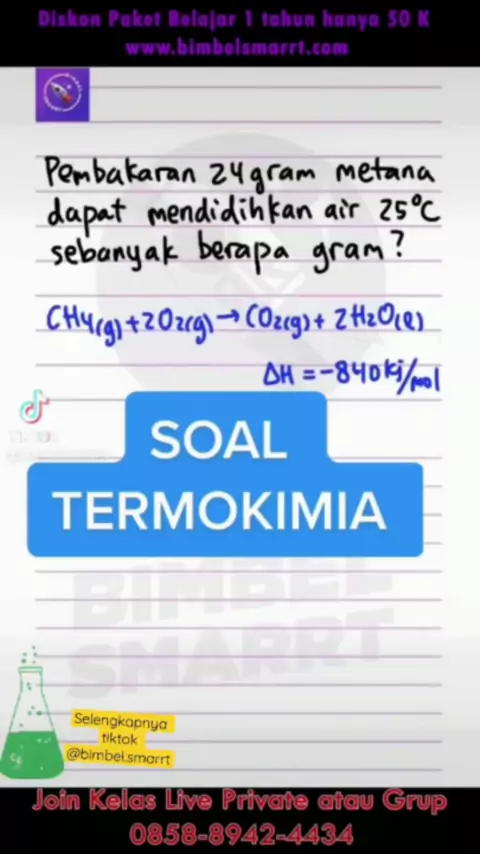 Diskon Paket Belajar 1 tahun hanya 50 K
www.bimbelsmarrt.com
Pembakaran 24 gram metana
dapat mendidihkan air 25°C
sebanyak berapa gram?
CH4(g)+2O2(g)→CO2(g)+2H2O(l)
ΔH=-840kj/mol
SOAL
TERMOKIMIA
BIMBEL
SMARRT
Selengkapnya
tiktok
@bimbel.smarrt
Join Kelas Live Private atau Grup
0858-8942-4434